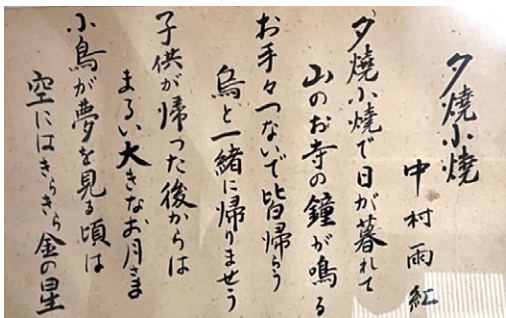 夕焼小焼
中村雨紅
夕焼小焼で日が暮れて
山のお寺の鐘が鳴る
お手々つないで皆帰らう
烏と一緒に帰りませう
子供が帰つた後からは
まるい大きなお月さま
小鳥が夢を見る頃は
空にはきらきら金の星